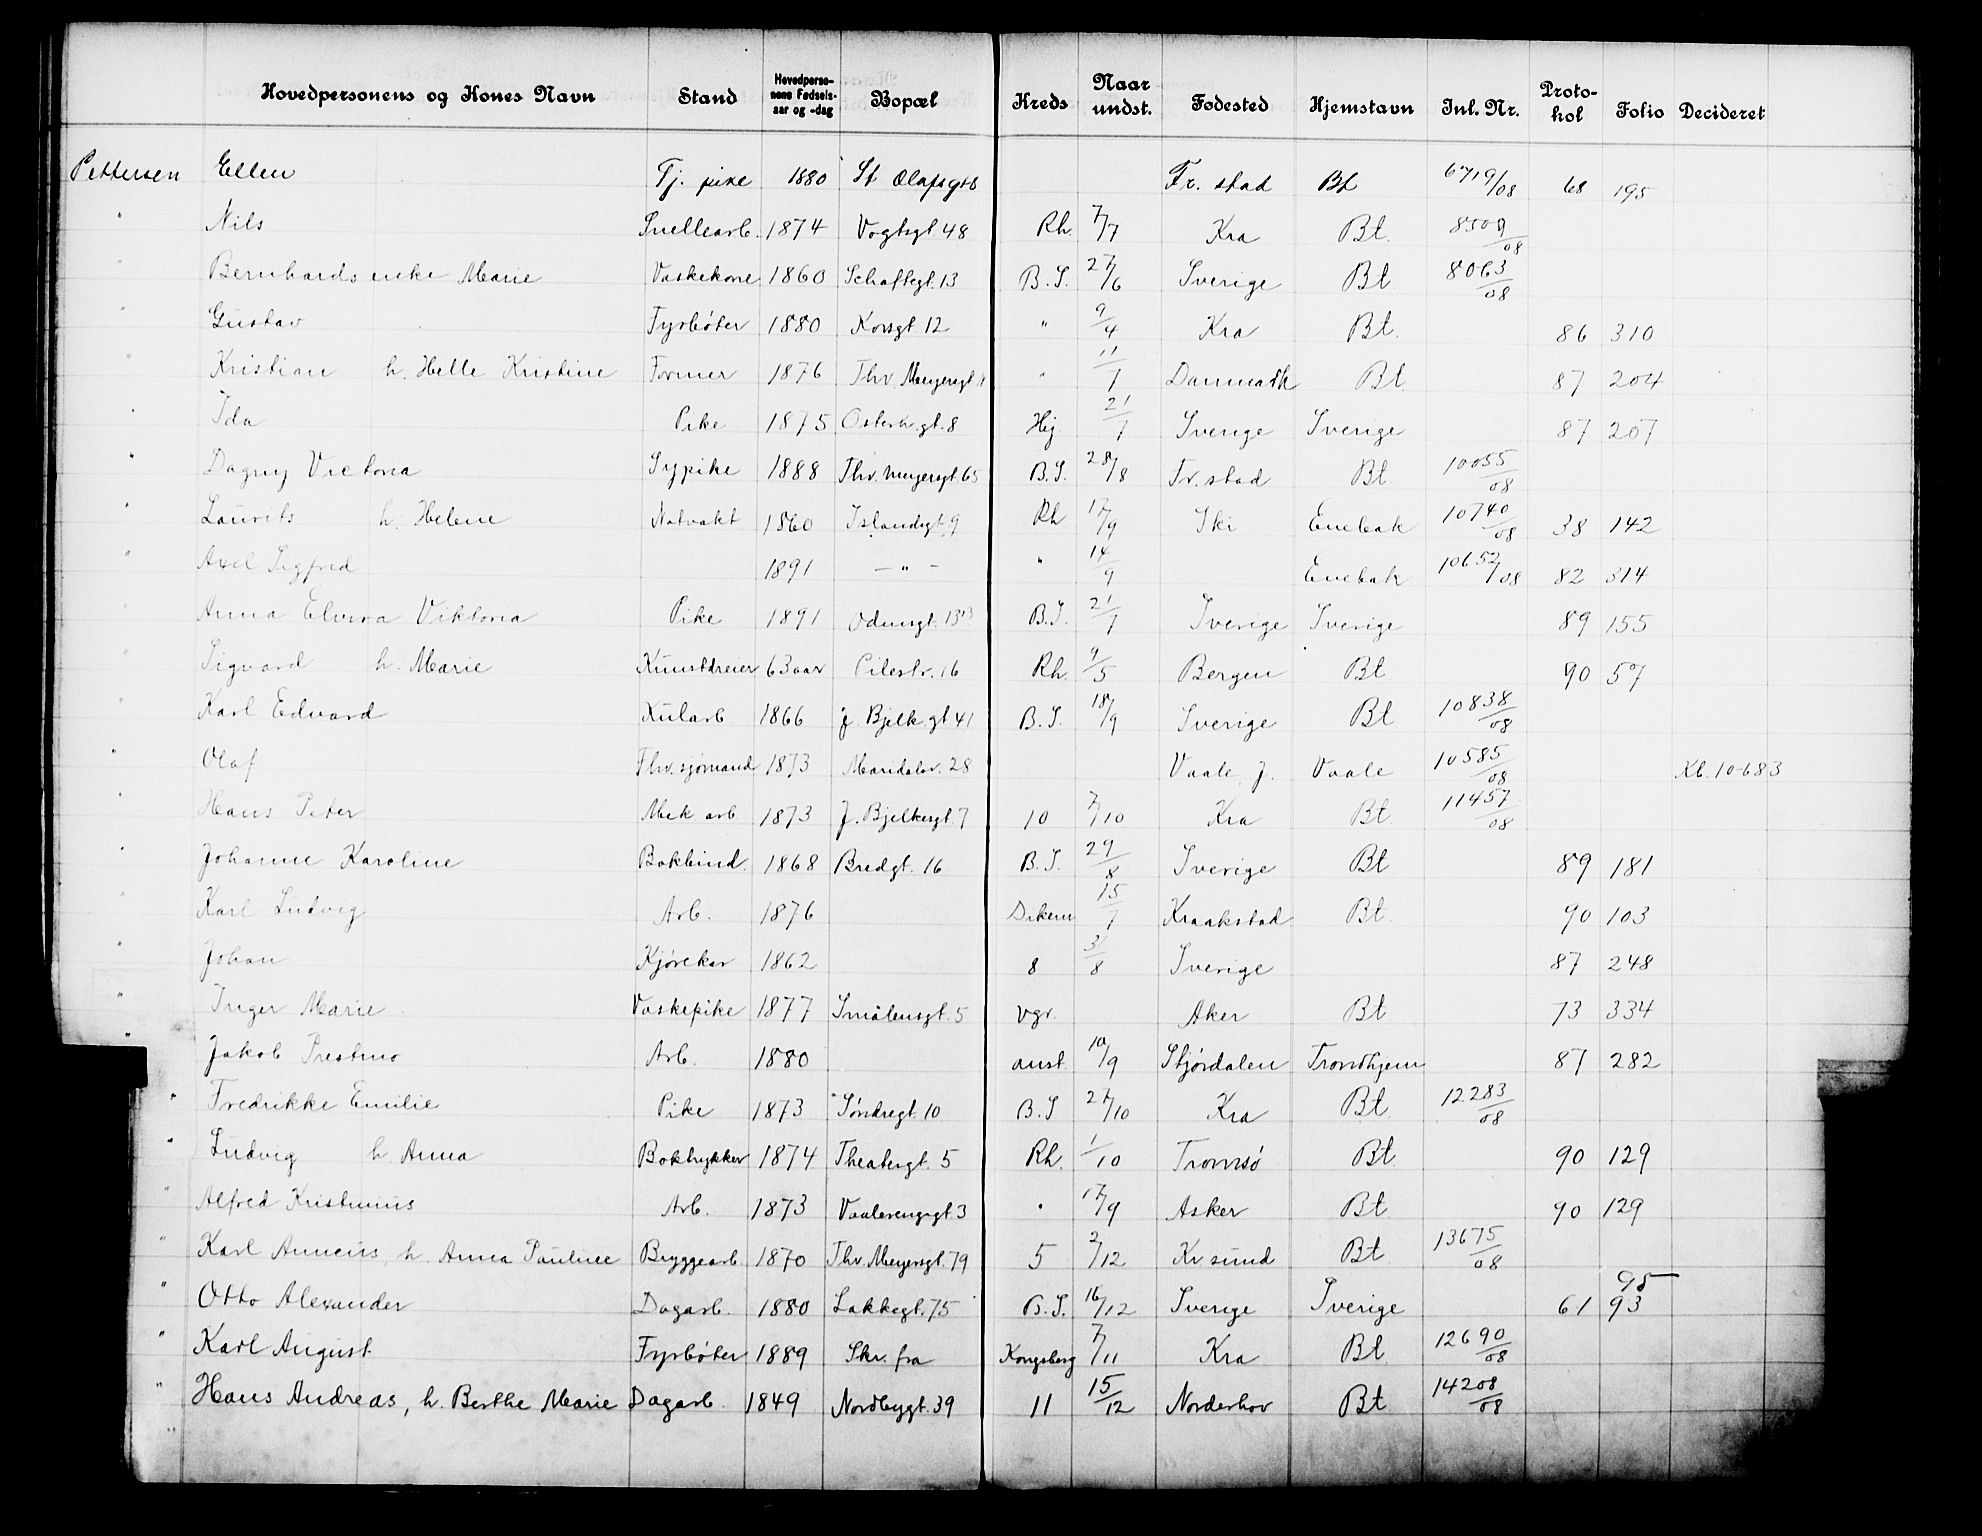 Hovedpersonens og Kones Navn Stand Hovedperso-nens Fødsels-aar og -dag Bopæl Kreds Naar undst. Fødested Hjemstavn Inl. Nr. Proto-kol Folio Decideret
Pettersen Ellen Tj. pike 1880 St Olafsgt 8 Fr. stad Bt 6719/08 68 195
" Nils Snellearb. 1874 Vogtsgt 48 Rh. 7/7 Kra Bt. 8509/08
" Bernhards enke Marie Vaskekone 1860 Schaftegt. 13 B.S. 27/6 Sverige Bt 8063/08
" Gustav Fyrbøter 1880 Korsgt 12 " 9/4 Kra Bt. 86 310
" Kristian h. Helle Kristine Former 1876 Thv. Meyersgt " 11/7 Danmark Bt. 87 204
" Ida Pike 1875 Osterh.gt. 8 Hej 21/7 Sverige Sverige 87 207
" Dagny Victoria Sypike 1888 Thv. Meyersgt. 65 B.S. 28/8 Fr. stad Bt 10055/08
" Laurits h. Helene Natvakt 1860 Islandsgt. 9 Rh 17/9 Ski Enebak 10740/08 38 142
" Axel Sigfred 1891 — " — " 14/9 Enebak 10652/08 82 314
" Anna Elvira Viktoria Pike 1891 Odinsgt. 13 B.S. 21/7 Sverige Sverige 89 155
" Sigvard h. Marie Kunstdreier 63 aar Pilestr. 16 Rh. 9/5 Bergen Bt 90 57
" Karl Edvard Kularb. 1866 J. Bjelk.gt 41 B.S. 18/9 Sverige Bt 10838/08
" Olaf Fhv. sjømand 1873 Maridalsv. 28 Vaale J. Vaale 10585/08 Kb. 10-683
" Hans Peter Mek arb 1873 J. Bjelkesgt. 7 10 7/10 Kra Bt 11457/08
" Johanne Karoline Bokbind. 1868 Bredgt. 16 B.S. 29/8 Sverige Bt 89 181
" Karl Ludvig Arb. 1876 Dikem 15/7 Kraakstad Bt. 90 103
" Johan Kjørekar 1862 8 3/8 Sverige 87 248
" Inger Marie Vaskepike 1877 Smålensgt. 5 vgr. Aker Bt 73 334
" Jakob Prestmo Arb. 1880 anst. 10/9 Stjørdalen Trondhjem 87 282
" Fredrikke Emilie Pike 1873 Søndregt. 10 B.S 27/10 Kra Bt. 12283/08
" Ludvig h Anna Boktrykker 1874 Theatergt. 5 Rh. 1/10 Tromsø Bt. 90 129
" Alfred Kristinius Arb. 1873 Vaalerengsgt. 3 " 17/9 Asker Bt 90 129
" Karl Anneus, h. Anna Pauline Bryggearb. 1870 Thv. Meyersgt. 79 5 2/12 Kr sund Bt 13675/08
" Otto Alexander Dagarb. 1880 Lakkegt. 75 B.S. 16/12 Sverige Sverige 61 95 93
" Karl August Fyrbøter 1889 Skr. fra Kongsberg 7/11 Kra Bt 12690/08
" Hans Andreas, h. Berthe Marie Dagarb. 1849 Nordbygt. 39 11 15/12 Norderhov Bt 14208/08